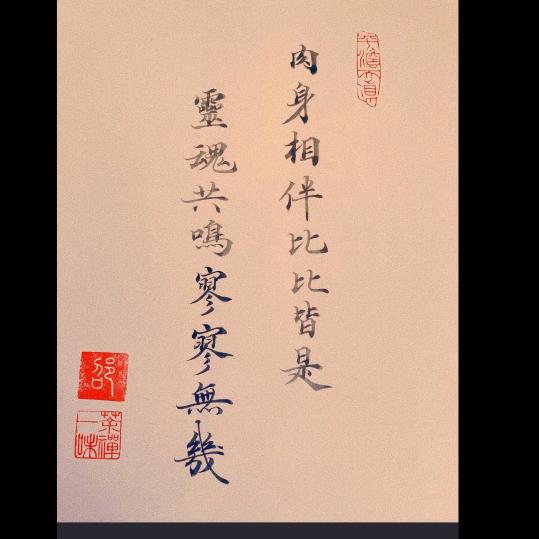 肉身相伴比比皆是
靈魂共鳴寥寥無幾
邵
茶禪一味